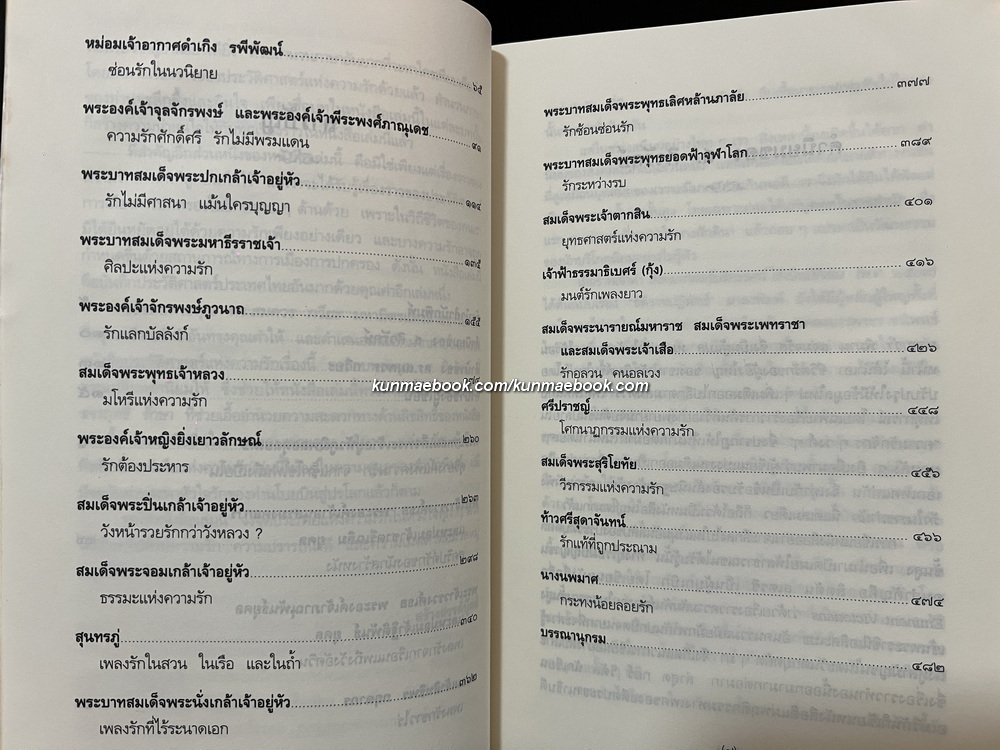 หม่อมเจ้าอากาศดำเกิง รพีพัฒน์ ๖๕
ซ่อนรักในนวนิยาย
พระองค์เจ้าจุลจักรพงษ์ และพระองค์เจ้าพีระพงศ์ภาณุเดช ๙๑
ความรักศักดิ์ศรี รักไม่มีพรมแดน
พระบาทสมเด็จพระปกเกล้าเจ้าอยู่หัว ๑๑๔
รักไม่มีศาสนา แม้นใครบุญญา
พระบาทสมเด็จพระมหาธีรราชเจ้า ๑๓๕
ศิลปะแห่งความรัก
พระองค์เจ้าจักรพงษ์ภูวนาถ ๑๕๕
รักแลกบัลลังก์
สมเด็จพระพุทธเจ้าหลวง
มโหรีแห่งความรัก
พระองค์เจ้าหญิงยิ่งเยาวลักษณ์ ๒๖๐
รักต้องประหาร
สมเด็จพระปิ่นเกล้าเจ้าอยู่หัว ๒๖๓
วังหน้ารวยรักกว่าวังหลวง ?
สมเด็จพระจอมเกล้าเจ้าอยู่หัว ๒๙๘
ธรรมะแห่งความรัก
สุนทรภู่ ๓๔๐
เพลงรักในสวน ในเรือ และในถ้ำ
พระบาทสมเด็จพระนั่งเกล้าเจ้าอยู่หัว ๓๖๒
เพลงรักที่ไร้ระนาดเอก
พระบาทสมเด็จพระพุทธเลิศหล้านภาลัย ๓๗๗
รักซ้อนซ่อนรัก
พระบาทสมเด็จพระพุทธยอดฟ้าจุฬาโลก ๓๘๙
รักระหว่างรบ
สมเด็จพระเจ้าตากสิน ๔๐๑
ยุทธศาสตร์แห่งความรัก
เจ้าฟ้าธรรมาธิเบศร์ (กุ้ง) ๔๑๖
มนต์รักเพลงยาว
สมเด็จพระนารายณ์มหาราช สมเด็จพระเพทราชา
และสมเด็จพระเจ้าเสือ ๔๒๖
รักอลวน คนอลเวง
ศรีปราชญ์ ๔๔๘
โศกนาฏกรรมแห่งความรัก
สมเด็จพระสุริโยทัย ๔๕๖
วีรกรรมแห่งความรัก
ท้าวศรีสุดาจันทน์ ๔๖๖
รักแท้ที่ถูกประณาม
นางนพมาศ ๔๗๔
กระทงน้อยลอยรัก
บรรณานุกรม ๔๘๒
kunmaebook.com/kunmaebook.com